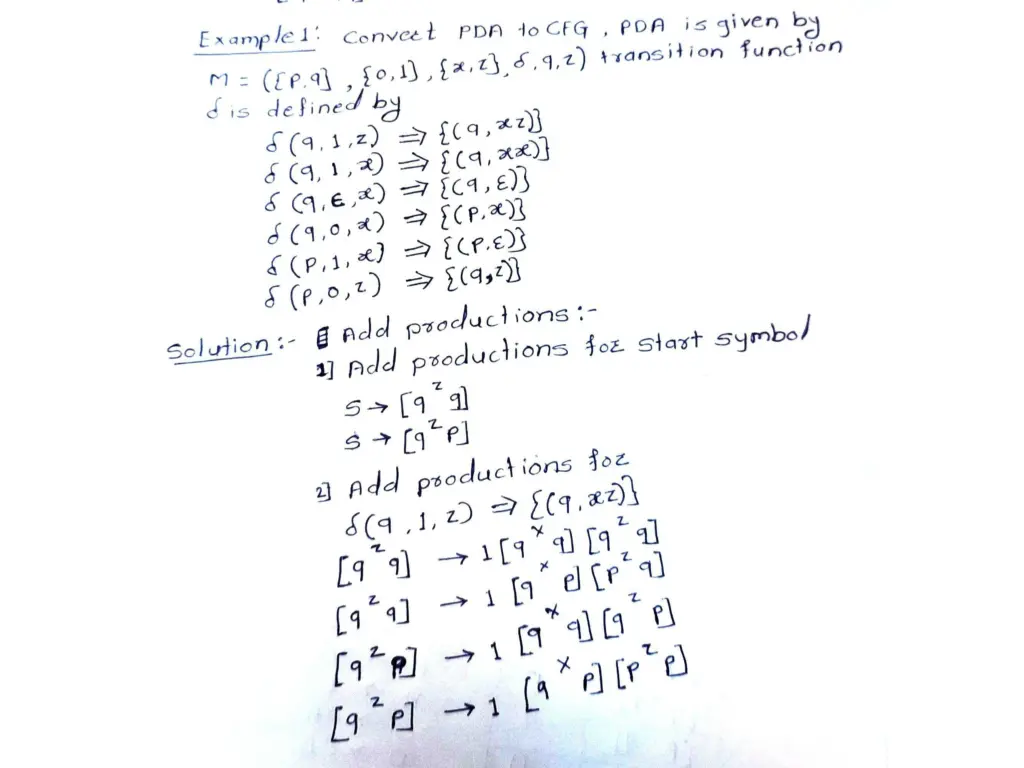 Example 1: Convert PDA to CFG, PDA is given by
M = ({p.q}, {0,1}, {x,z}, δ, q, z) transition function
δ is defined by
δ(q,1,z) ⇒ {(q,xz)}
δ(q,1,x) ⇒ {(q,xx)}
δ(q,ε,x) ⇒ {(q,ε)}
δ(q,0,x) ⇒ {(p,x)}
δ(p,1,x) ⇒ {(p.ε)}
δ(p,0,z) ⇒ {(q,z)}
Solution:- Add productions:-
1] Add productions for start symbol
S → [q^z q]
S → [q^z p]
2] Add productions for
δ(q,1,z) ⇒ {(q,xz)}
[q^z q] → 1 [q^x q] [q^z q]
[q^z q] → 1 [q^x p] [p^z q]
[q^z p] → 1 [q^x q] [q^z p]
[q^z p] → 1 [q^x p] [p^z p]